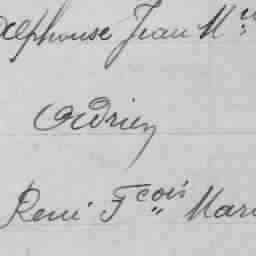 Alphonse Jean M
Adrien
René Fçois Mari